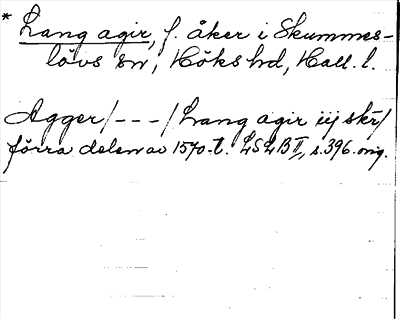 * Lang agir, f. åker i Skummes-
lövs sn, Höks hd, Hall. l.
Agger/---/Lang agir iij skr/
förra delen av 1570-t. LSLB II, s. 396. orig.